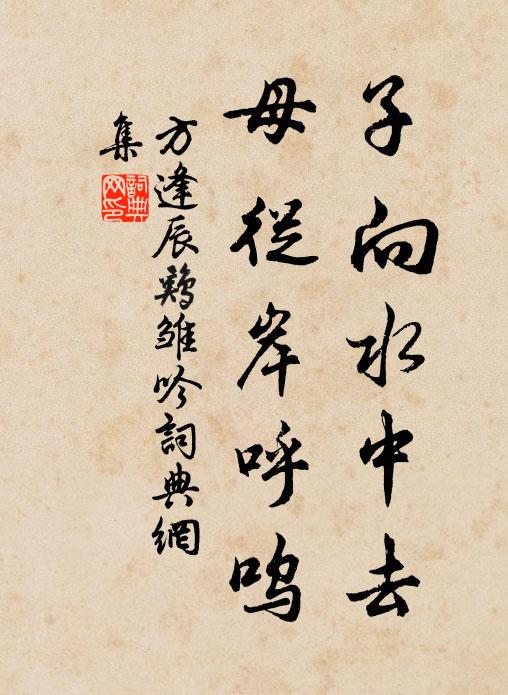 子向水中去
母從岸呼鳴
方逢辰鷄雏吟詞典網
集
詞典網印